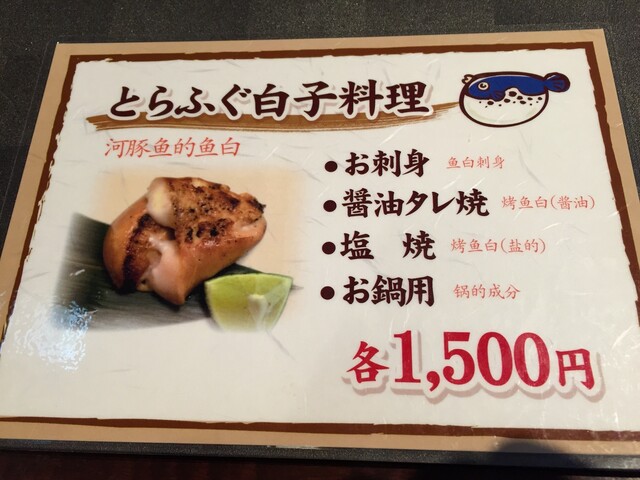 とらふぐ白子料理
河豚鱼的鱼白
●お刺身 鱼白刺身
●醤油タレ焼 烤鱼白(酱油)
●塩 焼 烤鱼白(盐的)
●お鍋用 锅的成分
各1,500円